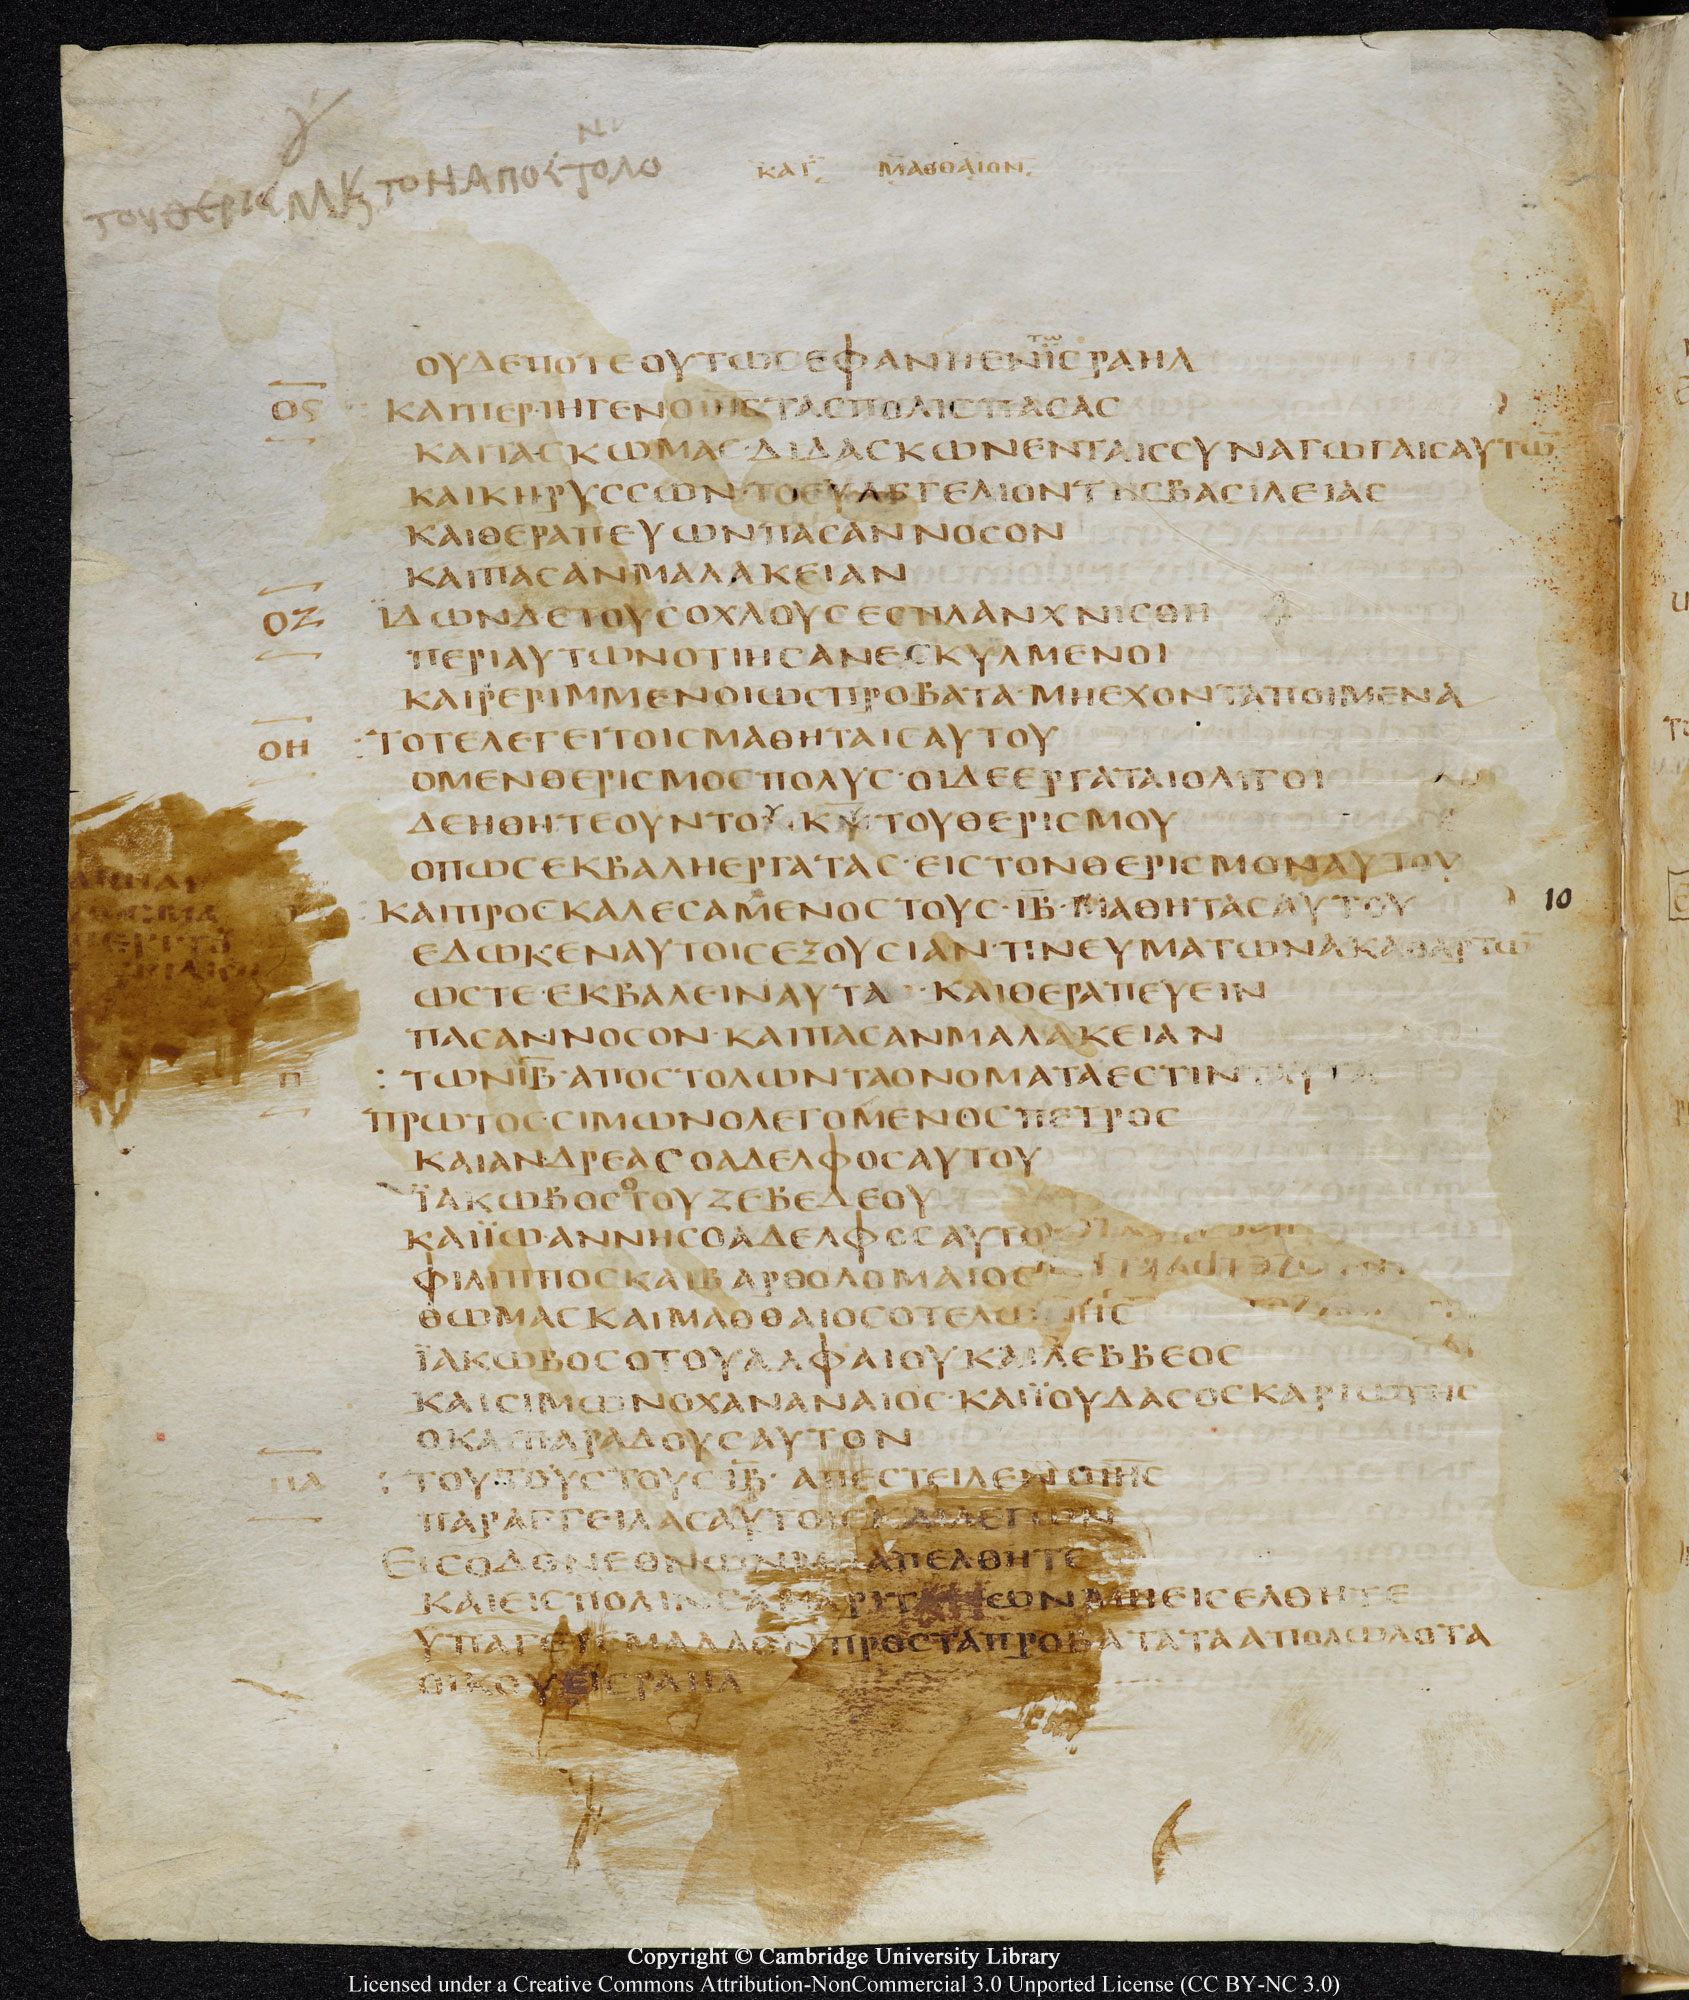 ΤΟΥ ΘΕΡΙϹ ΤΟΝ ΑΠΟϹΤΟΛΟ
ΚΑΤ ΜΑΘΘΑΙΟΝ
ΟΥΔΕΠΟΤΕΟΥΤΩϹΕΦΑΝΗΕΝΙϹΡΑΗΛ
ΟϚ ΚΑΙΠΕΡΙΗΓΕΝΟΙΗϹΤΑϹΠΟΛΙϹΠΑϹΑϹ
ΚΑΙΤΑϹΚΩΜΑϹ·ΔΙΔΑϹΚΩΝΕΝΤΑΙϹϹΥΝΑΓΩΓΑΙϹΑΥΤΩ̅
ΚΑΙΚΗΡΥϹϹΩΝ·ΤΟΕΥΑΓΓΕΛΙΟΝΤΗϹΒΑϹΙΛΕΙΑϹ
ΚΑΙΘΕΡΑΠΕΥΩΝΠΑϹΑΝΝΟϹΟΝ
ΚΑΙΠΑϹΑΝΜΑΛΑΚΕΙΑΝ
ΟΖ ΪΔΩΝΔΕΤΟΥϹΟΧΛΟΥϹΕϹΠΛΑΝΧΝΙϹΘΗ
ΠΕΡΙΑΥΤΩΝΟΤΙΗϹΑΝΕϹΚΥΛΜΕΝΟΙ
ΚΑΙΡΕΡΙΜΜΕΝΟΙΩϹΠΡΟΒΑΤΑ·ΜΗΕΧΟΝΤΑΠΟΙΜΕΝΑ
ΟΗ :ΤΟΤΕΛΕΓΕΙΤΟΙϹΜΑΘΗΤΑΙϹΑΥΤΟΥ
ΟΜΕΝΘΕΡΙϹΜΟϹΠΟΛΥϹ·ΟΙΔΕΕΡΓΑΤΑΙΟΛΙΓΟΙ
ΔΕΗΘΗΤΕΟΥΝΤΟΥΚ̅Υ̅ΤΟΥΘΕΡΙϹΜΟΥ
ΟΠΩϹΕΚΒΑΛΗΕΡΓΑΤΑϹ·ΕΙϹΤΟΝΘΕΡΙϹΜΟΝΑΥΤΟΥ
ΚΑΙΠΡΟϹΚΑΛΕϹΑΜΕΝΟϹΤΟΥϹ·Ι̅Β̅·ΜΑΘΗΤΑϹΑΥΤΟΥ 10
ΕΔΩΚΕΝΑΥΤΟΙϹΕΞΟΥϹΙΑΝ·ΠΝΕΥΜΑΤΩΝΑΚΑΘΑΡΤΩ̅
ΩϹΤΕ·ΕΚΒΑΛΕΙΝΑΥΤΑ·ΚΑΙΘΕΡΑΠΕΥΕΙΝ
ΠΑϹΑΝΝΟϹΟΝ·ΚΑΙΠΑϹΑΝΜΑΛΑΚΕΙΑΝ
Π :ΤΩΝΙ̅Β̅·ΑΠΟϹΤΟΛΩΝΤΑΟΝΟΜΑΤΑΕϹΤΙΝΤΑΥΤΑ
ΠΡΩΤΟϹϹΙΜΩΝΟΛΕΓΟΜΕΝΟϹΠΕΤΡΟϹ
ΚΑΙΑΝΔΡΕΑϹΟΑΔΕΛΦΟϹΑΥΤΟΥ
ΪΑΚΩΒΟϹΟΤΟΥΖΕΒΕΔΕΟΥ
ΚΑΙΪΩΑΝΝΗϹΟΑΔΕΛΦΟϹΑΥΤΟΥ
ΦΙΛΙΠΠΟϹΚΑΙΒΑΡΘΟΛΟΜΑΙΟϹ
ΘΩΜΑϹΚΑΙΜΑΘΘΑΙΟϹΟΤΕΛΩΝΗϹ
ΪΑΚΩΒΟϹΟΤΟΥΑΛΦΑΙΟΥΚΑΙΛΕΒΒΕΟϹ
ΚΑΙϹΙΜΩΝΟΧΑΝΑΝΑΙΟϹ·ΚΑΙΪΟΥΔΑϹΟϹΚΑΡΙΩΤΗϹ
ΟΚΑΙΠΑΡΑΔΟΥϹΑΥΤΟΝ
ΠΑ :ΤΟΥΤΟΥϹΤΟΥϹΙ̅Β̅·ΑΠΕϹΤΕΙΛΕΝΟΙ̅Η̅Ϲ̅
ΠΑΡΑΓΓΕΙΛΑϹΑΥΤΟΙϹΚΑΙΛΕΓΩΝ
ΕΙϹΟΔΟΝΕΘΝΩΝΜΗΑΠΕΛΘΗΤΕ
ΚΑΙΕΙϹΠΟΛΙΝϹΑΜΑΡΙΤΑΝΩΝΜΗΕΙϹΕΛΘΗΤΕ
ΥΠΑΓΕΤΕΜΑΛΛΟΝΠΡΟϹΤΑΠΡΟΒΑΤΑΤΑΑΠΟΛΩΛΟΤΑ
ΟΙΚΟΥΕΙϹΡΑΗΛ
Copyright © Cambridge University Library
Licensed under a Creative Commons Attribution-NonCommercial 3.0 Unported License (CC BY-NC 3.0)